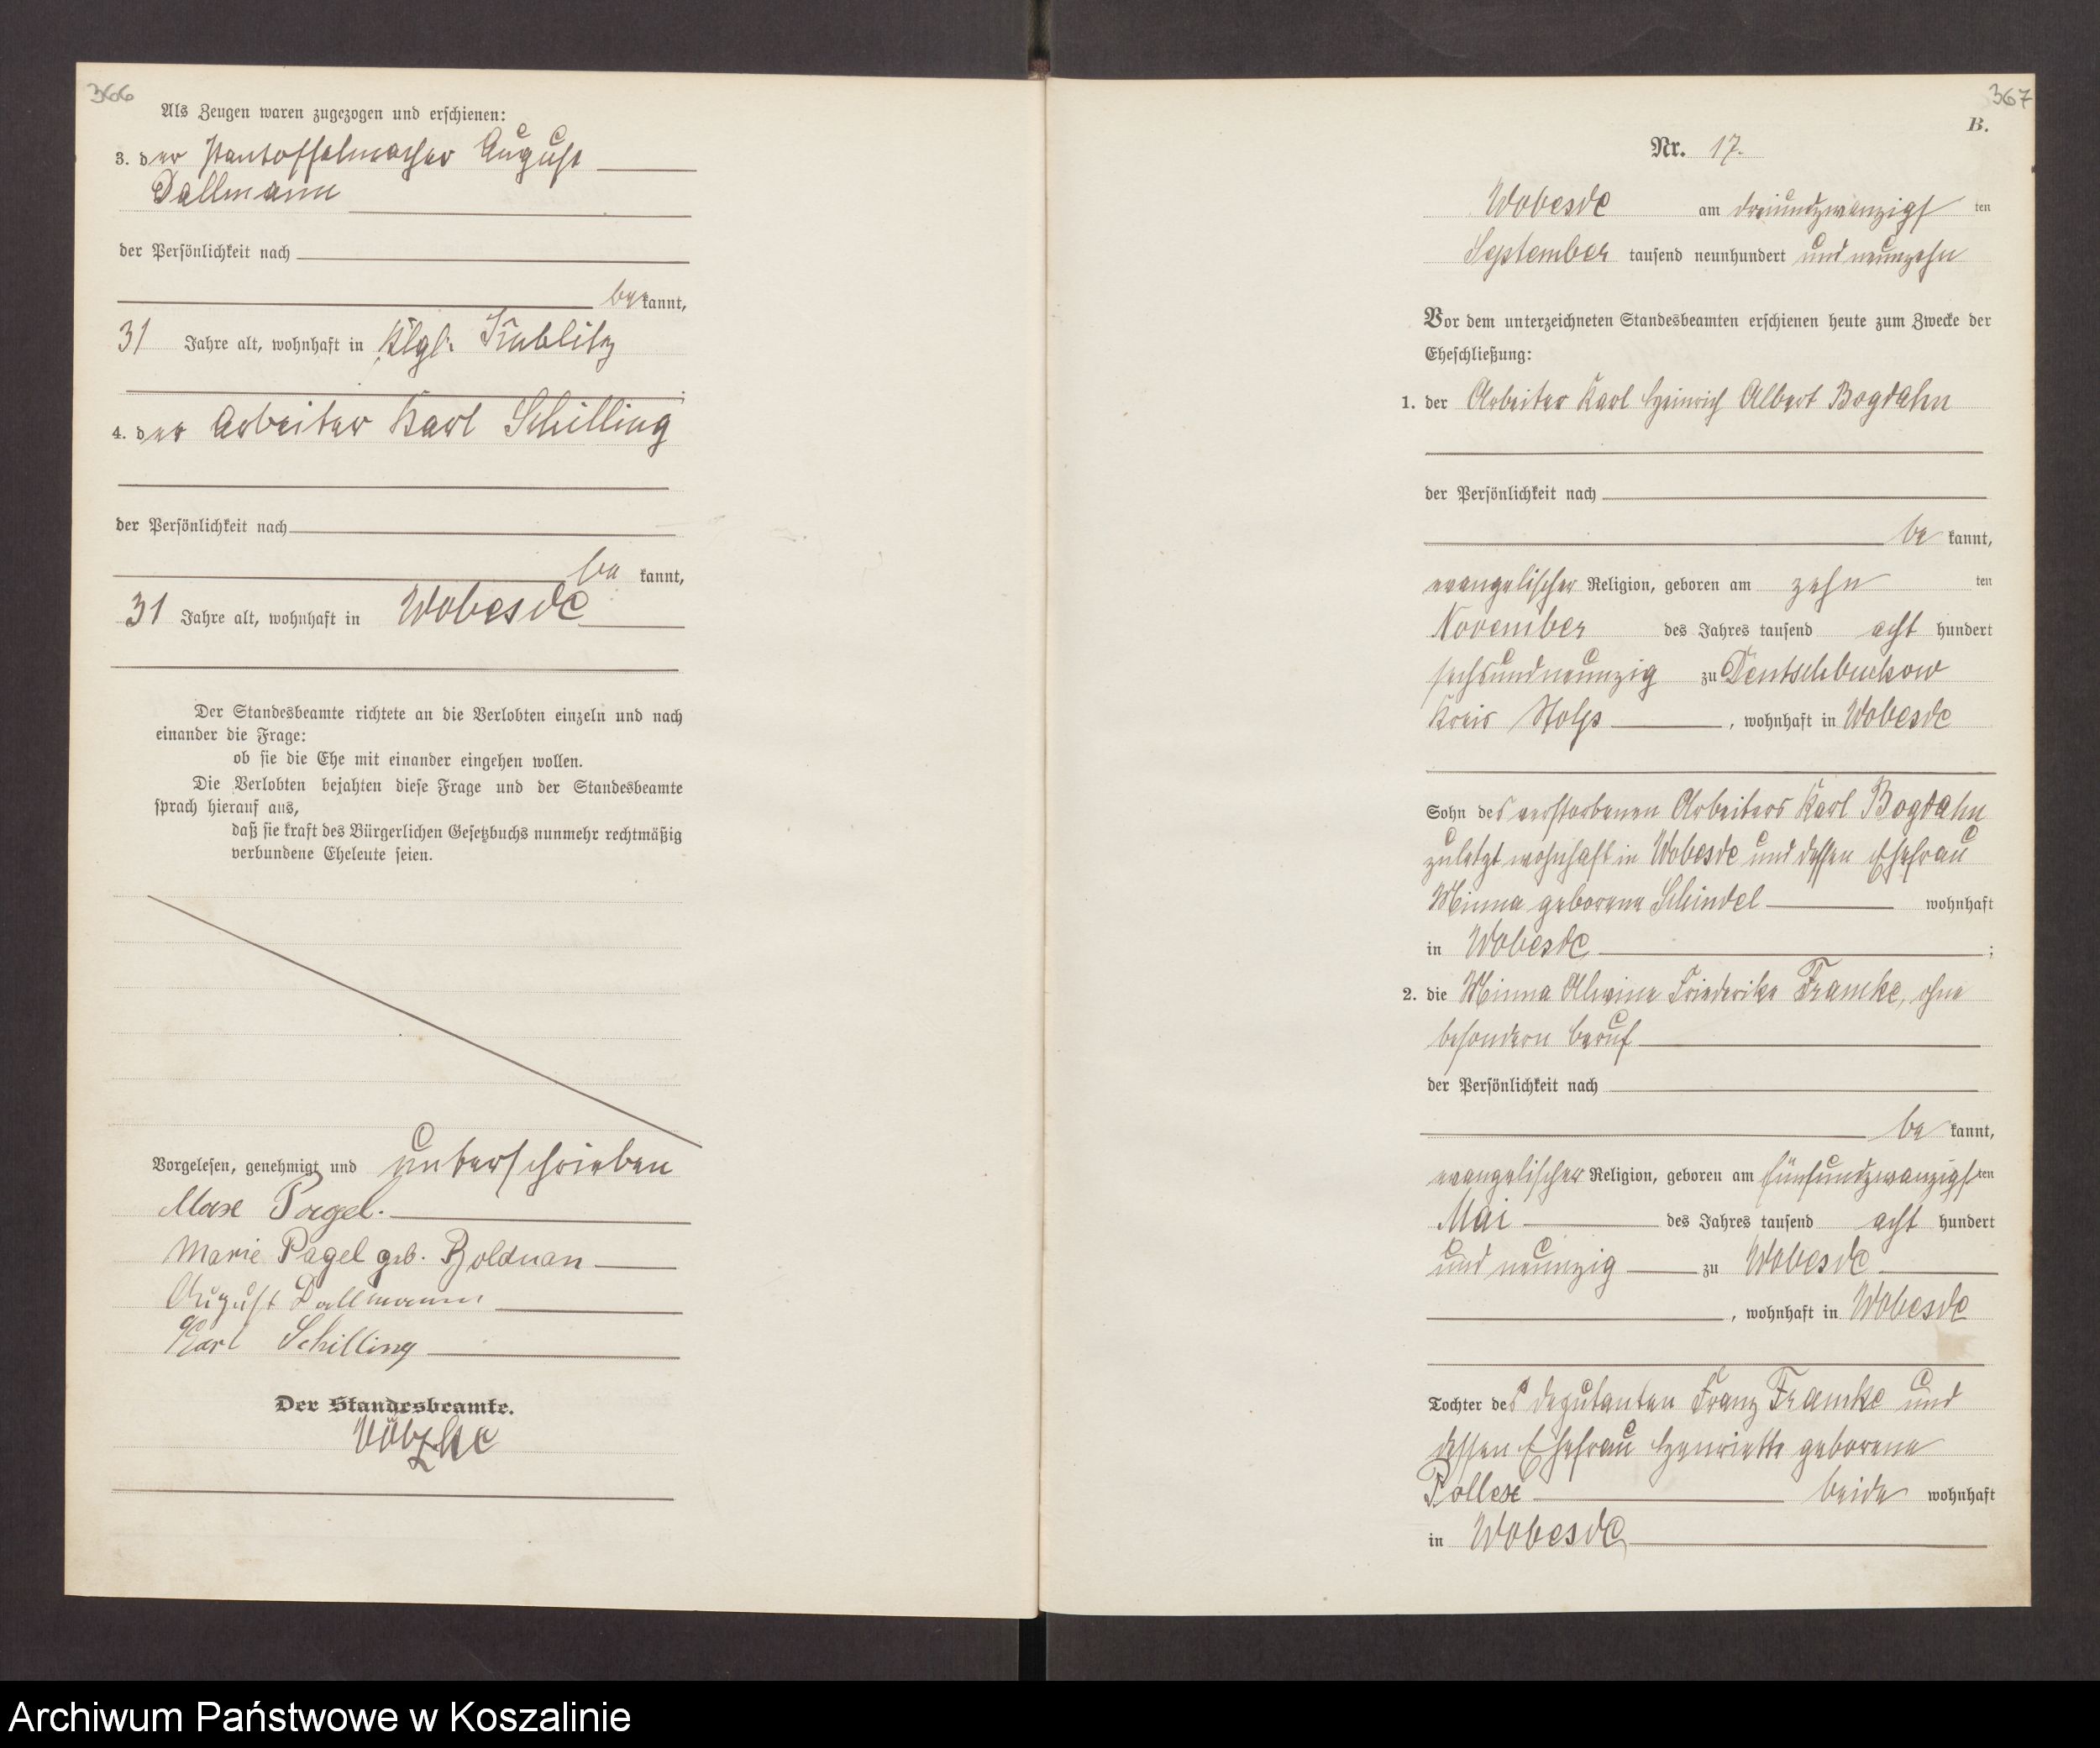 366
Als Zeugen waren zugezogen und erschienen:
3. der Pantoffelmacher August
Dallmann
der Persönlichkeit nach
bekannt,
31 Jahre alt, wohnhaft in Klgl. Kublitz
;
4. der Arbeiter Karl Schilling
der Persönlichkeit nach
be kannt,
31 Jahre alt, wohnhaft in Wobesde
Der Standesbeamte richtete an die Verlobten einzeln und nach
einander die Frage:
ob sie die Ehe mit einander eingehen wollen.
Die Verlobten bejahten diese Frage und der Standesbeamte
sprach hierauf aus,
daß sie kraft des Bürgerlichen Gesetzbuchs nunmehr rechtmäßig
verbundene Eheleute seien.
Vorgelesen, genehmigt und unterschrieben
Max Pagel.
Marie Pagel geb. Bolduan
August Dallmann
Karl Schilling
Der Standesbeamte.
367
B.
Nr. 17.
Wobesde am dreiundzwanzigsten
September tausend neunhundert und neunzehn
Vor dem unterzeichneten Standesbeamten erschienen heute zum Zwecke der
Eheschließung:
1. der Arbeiter Karl Heinrich Albert Bogdahn
der Persönlichkeit nach
be kannt,
evangelischer Religion, geboren am zehn ten
November des Jahres tausend acht hundert
sechsundneunzig zu Deutschbuckow
Kreis Stolp, wohnhaft in Wobesde
Sohn des verstorbenen Arbeiters Karl Bogdahn
zuletzt wohnhaft in Wobesde und dessen Ehefrau
Minna geborene Schindel wohnhaft
in Wobesde ;
2. die Minna Alwine Friederike Framke, ohne
besondern Beruf
der Persönlichkeit nach
be kannt,
evangelischer Religion, geboren am fünfundzwanzigsten
Mai des Jahres tausend acht hundert
und neunzig zu Wobesde
, wohnhaft in Wobesde
Tochter des Deputanten Franz Framke und
dessen Ehefrau Henriette geborene
Pollex beide wohnhaft
in Wobesde
Archiwum Państwowe w Koszalinie